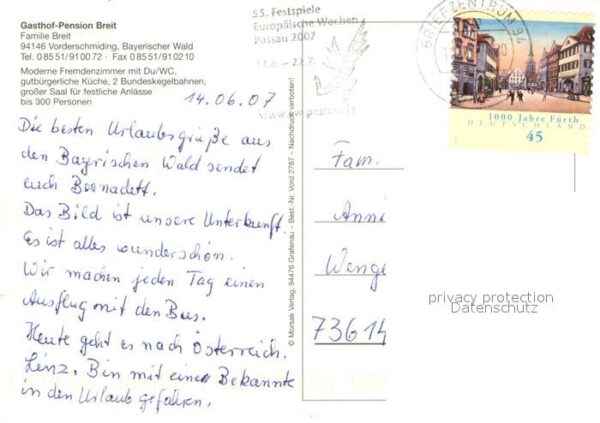 Gasthof-Pension Breit
Familie Breit
94146 Vorderschmiding, Bayerischer Wald
Tel. 0 85 51/91 00 72 · Fax 0 85 51/91 02 10
Moderne Fremdenzimmer mit Du/WC,
gutbürgerliche Küche, 2 Bundeskegelbahnen,
großer Saal für festliche Anlässe
bis 300 Personen
14.06.07
Die besten Urlaubsgrüße aus
den Bayrischen Wald sendet
euch Bernadett.
Das Bild ist unsere Unterkunft.
Es ist alles wunderschön.
Wir machen jeden Tag einen
Ausflug mit den Bus.
Heute geht es nach Österreich.
Linz. Bin mit einer Bekannte
in den Urlaub gefahren.
© Morsak Verlag, 94476 Grafenau – Best.-Nr. Vord 2787 – Nachdruck verboten!
55. Festspiele
Europäische Wochen
Passau 2007
BRIEFZENTRUM 94
1000 Jahre Fürth
DEUTSCHLAND
45
Fam.
Anne
Wenge
73614
privacy protection
Datenschutz